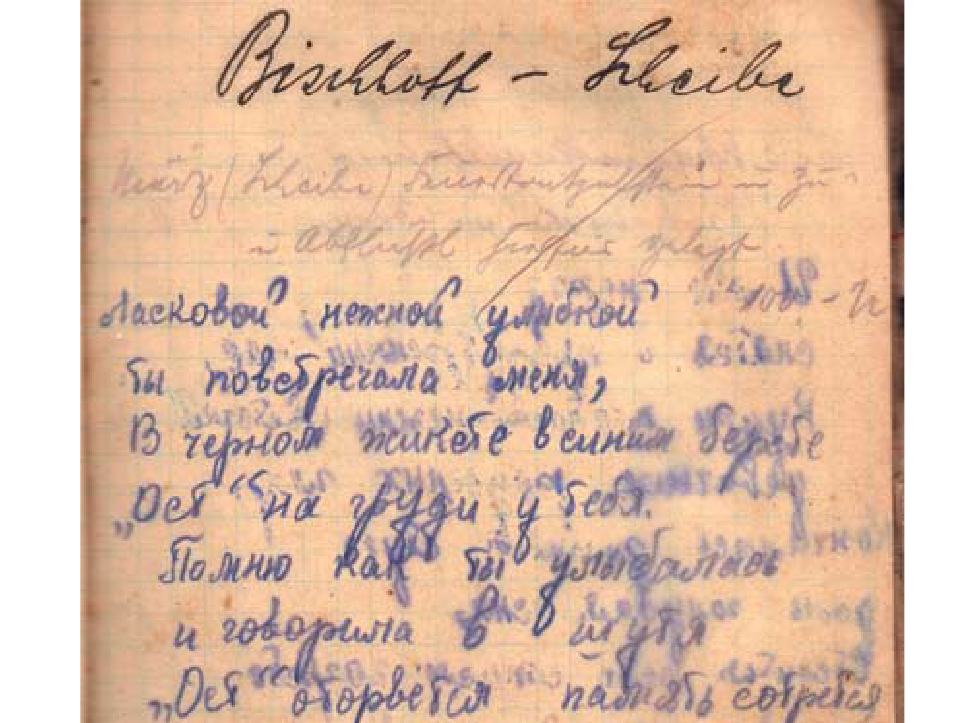 Bischhoff – Scheibe
März (Scheibe)
Ласковой нежной улыбкой
ты повстречала меня,
В черном жикете в синим берете
„Ост“ на груди у тебя.
Помню как ты улыбалась
и говорила в шутя
„Ост“ оторвётся память сотрётся